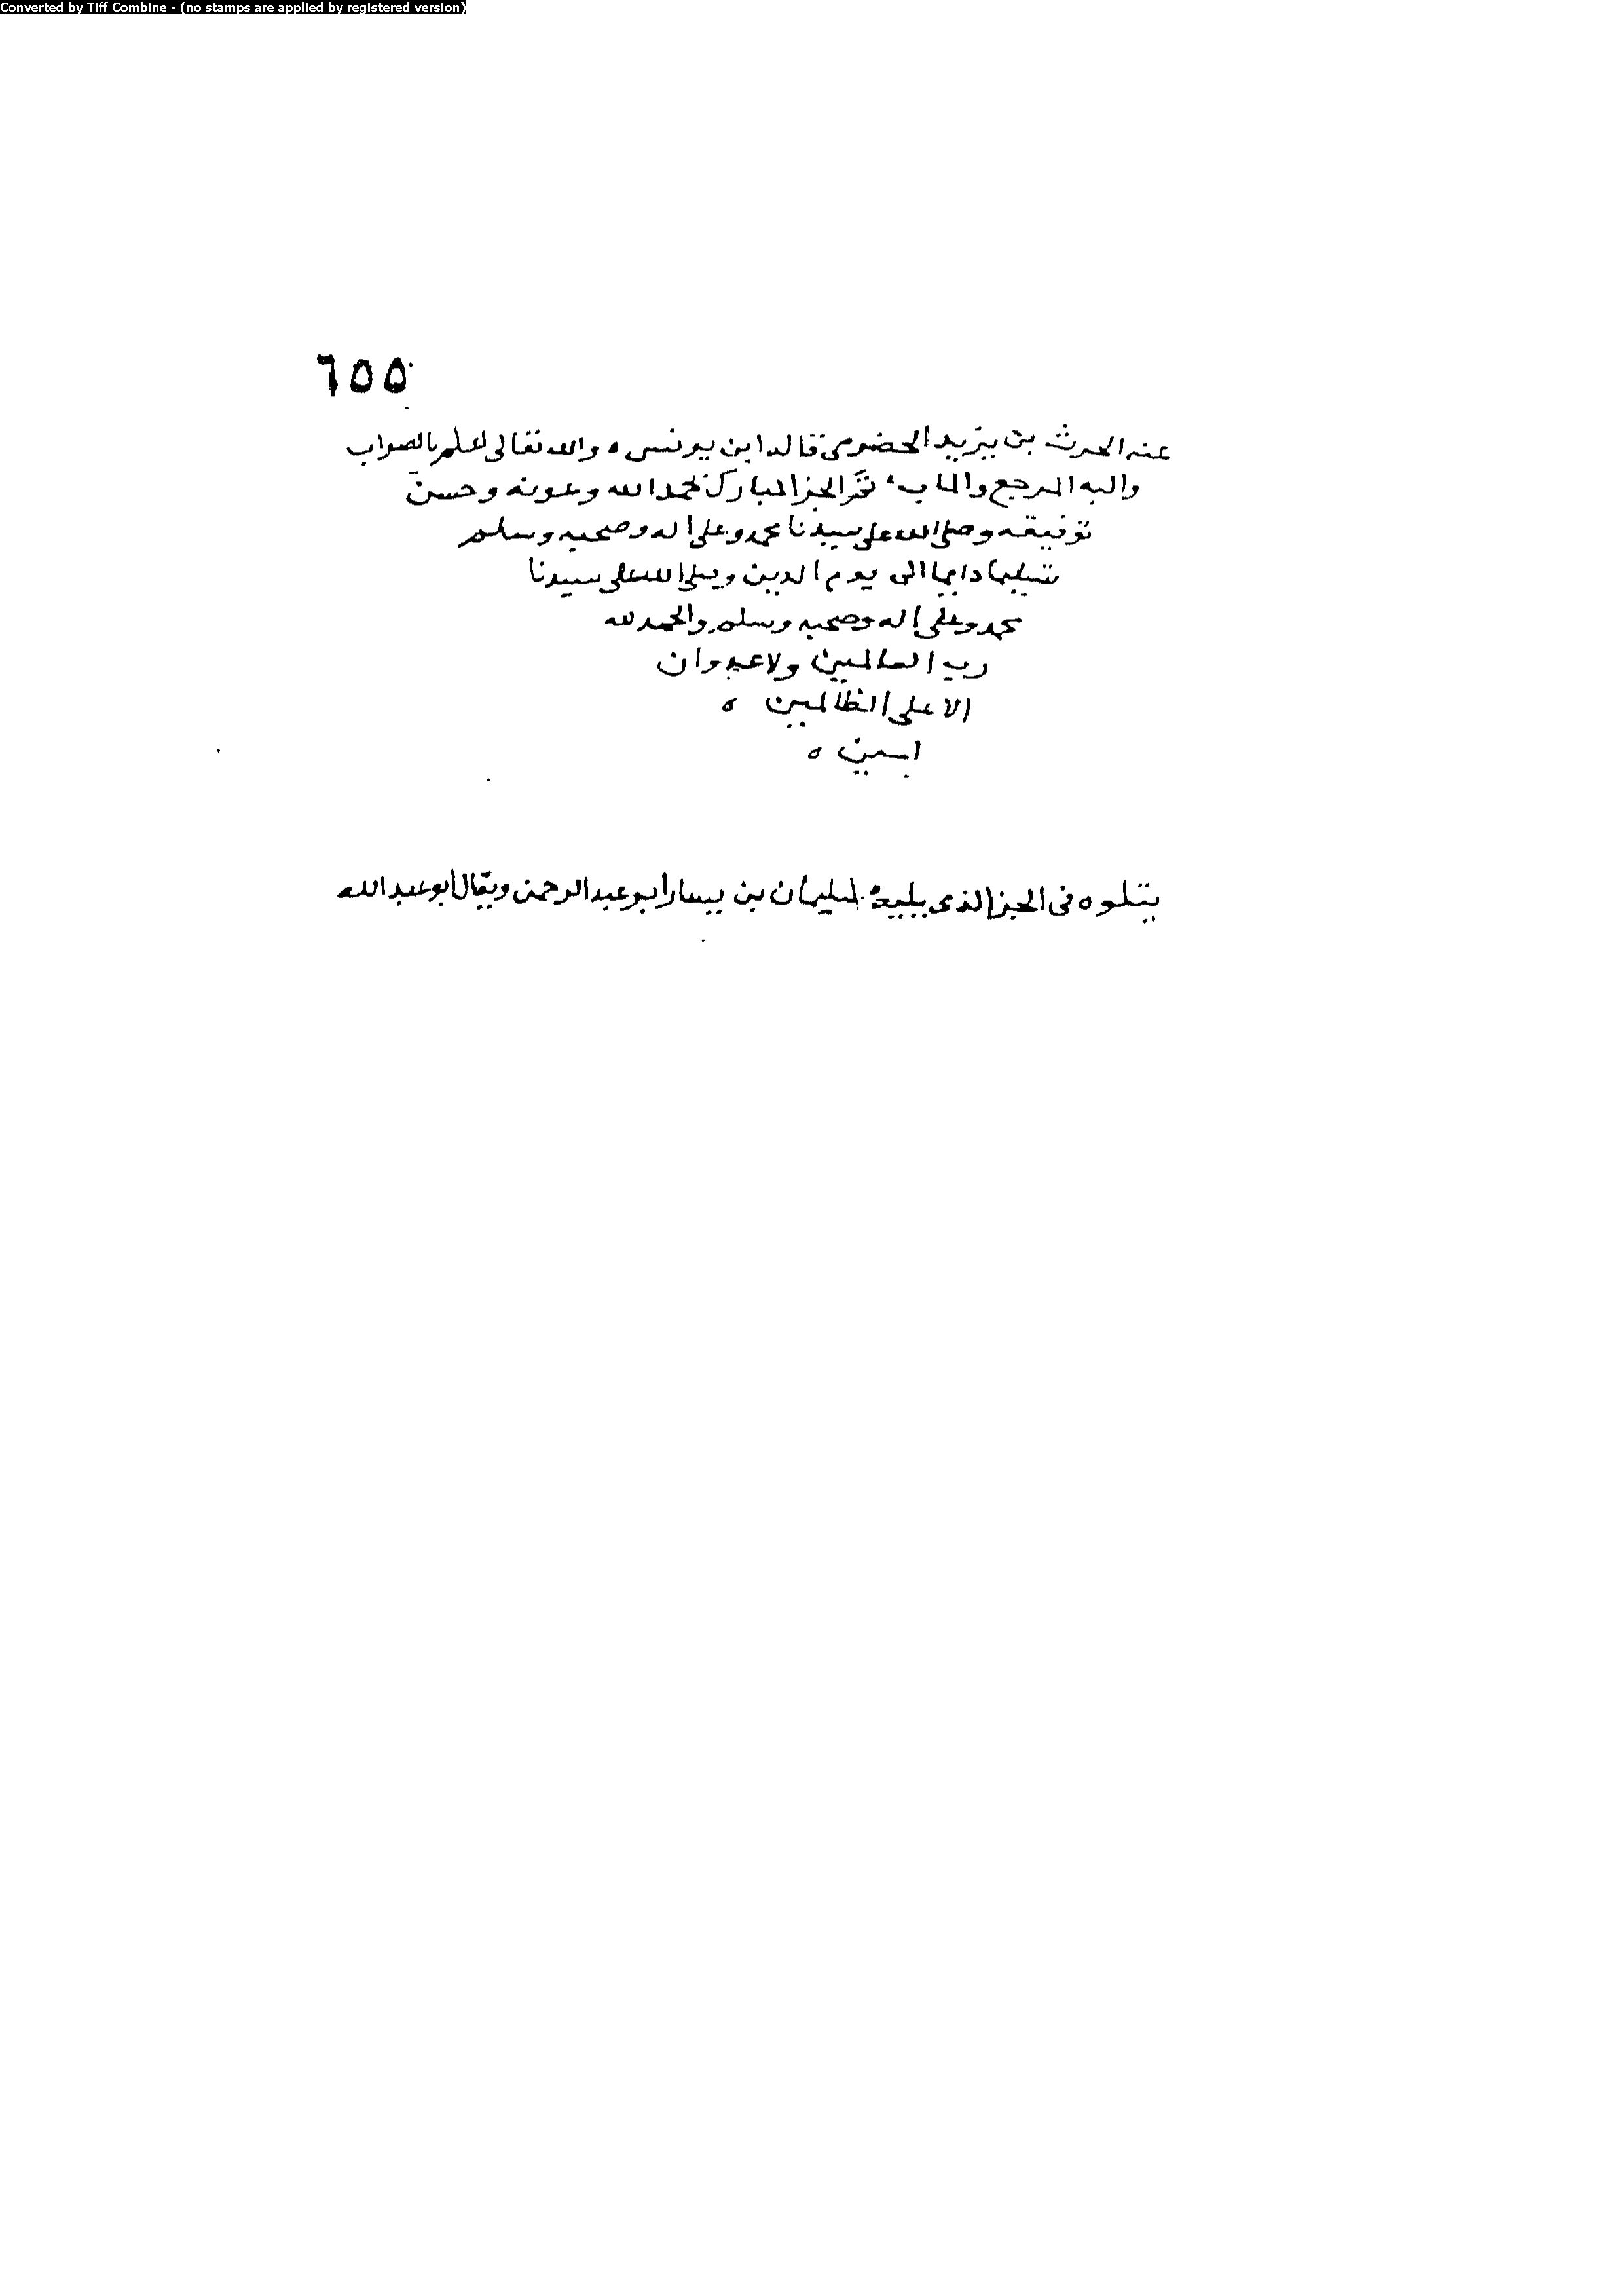 Converted by Tiff Combine - (no stamps are applied by registered version)
٦٥٥
عنه الحرث بن يزيد الحضرمى قاله ابن يونس ه والله تعالى اعلم بالصواب
واليه المرجع والماب تم الجز المبارك بحمد الله وعونه وحسن
توفيقه وصلى الله على سيدنا محمد وعلى اله وصحبه وسلم
تسليما دايما الى يوم الدين وصلى الله على سيدنا
محمد وعلى اله وصحبه وسلم والحمد لله
رب العالمين ولا عدوان
الا على الظالمين ه
امين ه
يتلوه فى الجز الذى يليه سليمان بن يسار ابو عبد الرحمن ويقال ابو عبد الله